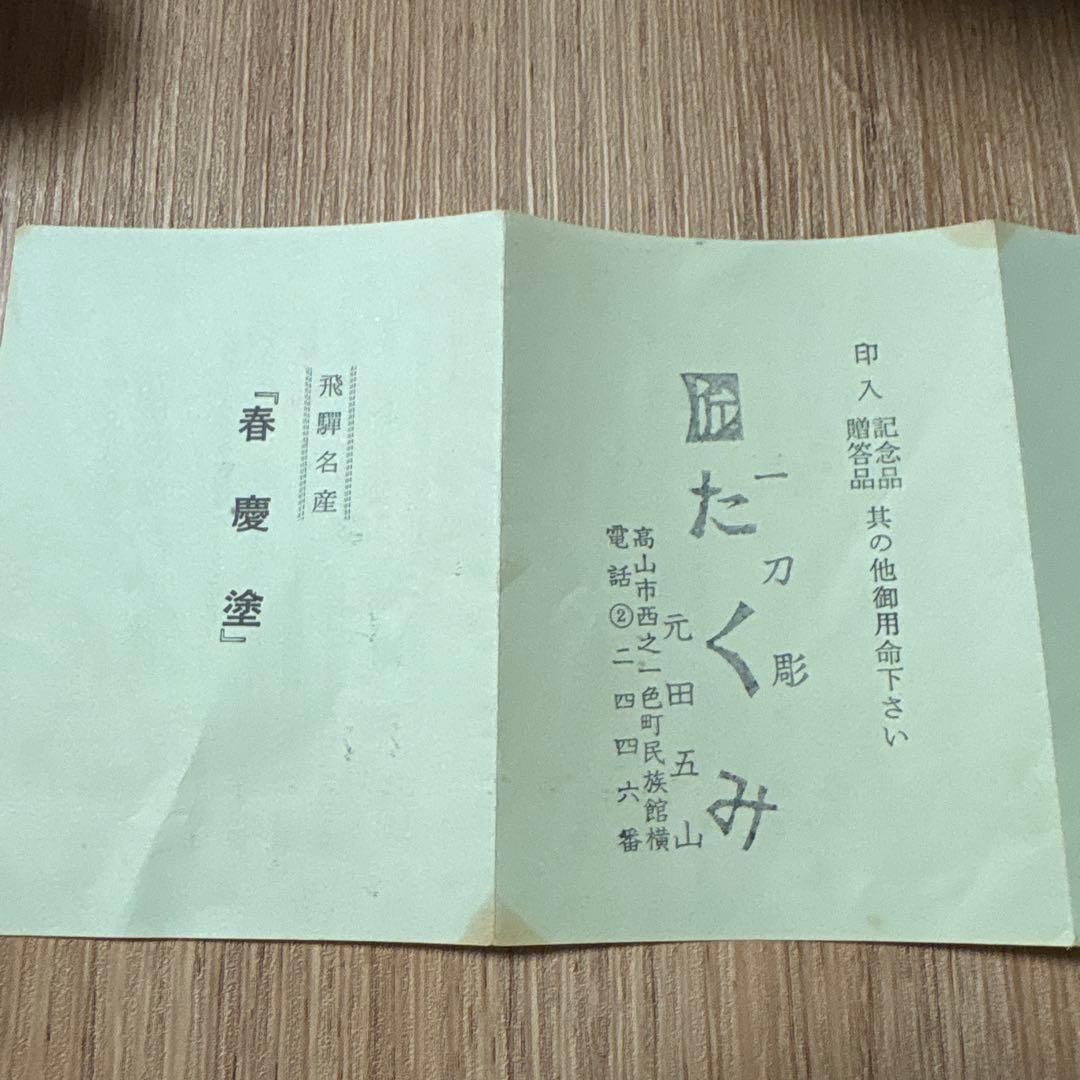 印入 記念品 贈答品 其の他御用命下さい
一刀彫
匠 たくみ
元田五山
高山市西之一色町民族館横
電話②二四四六番
飛驒名産
『春慶塗』